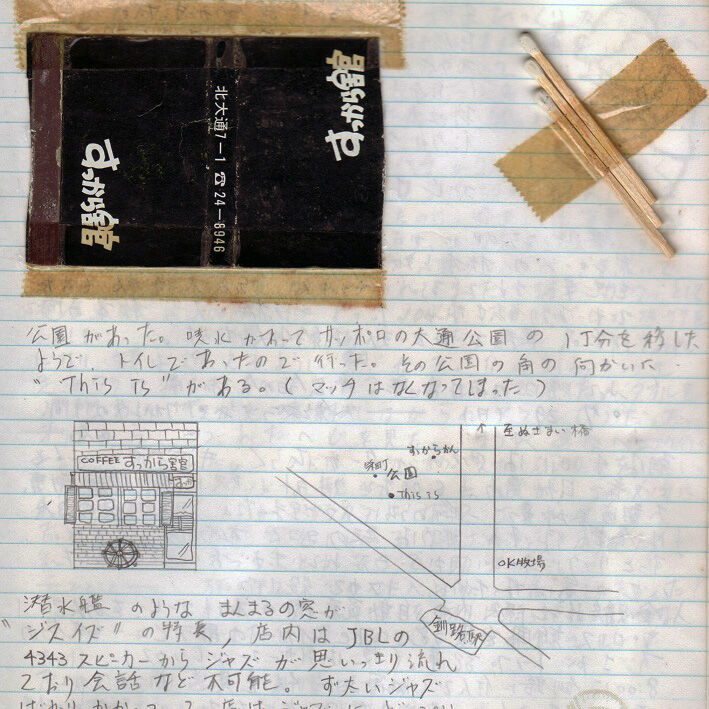 すっから館
北大通7-1 ☎24-8946
すっから館
公園があった。噴水があってサッポロの大通公園の1丁分を移した
ようで、トイレであったので行った。その公園の角の向かいに
"This is"がある。(マッチはなくなってしまった)
COFFEE すっから館
すっから
↑ 至ぬさまい橋
すっからかん
栄町公園
This is
OK牧場
釧路駅
潜水艦のような まんまるの窓が
"ジスイズ"の特長, 店内はJBLの
4343スピーカーからジャズが思いっきり流れ
ており会話など不可能。ずぶといジャズ